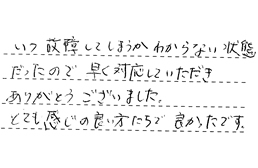 いつ故障してしまうかわからない状態
だったので早く対応していただき
ありがとうございました。
とても感じの良い方たちで良かったです。